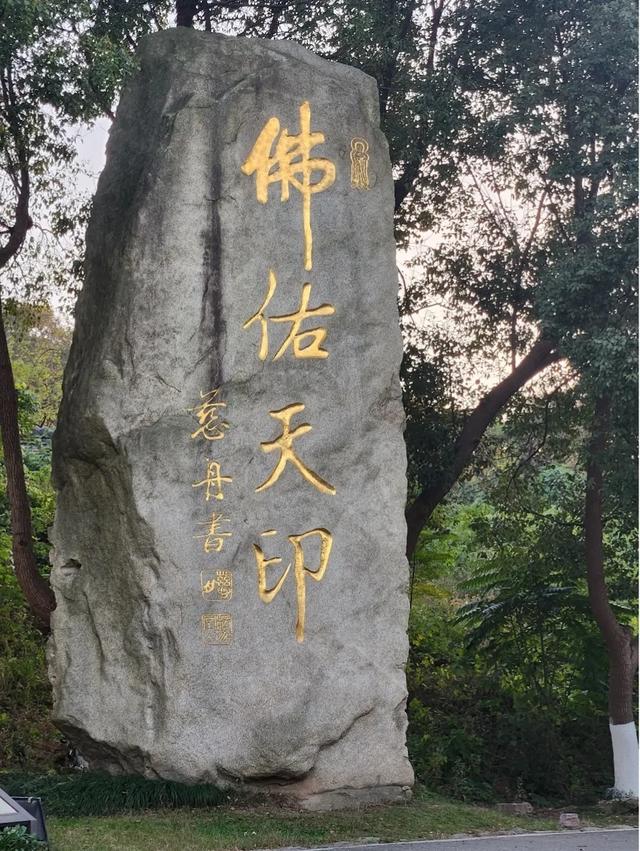 佛佑天印
慈舟書